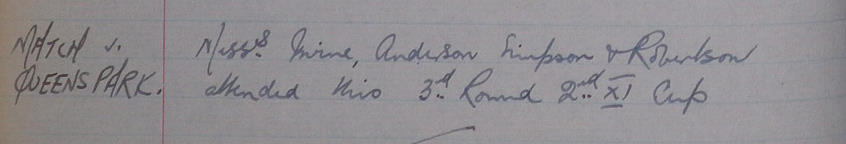 MATCH v. Messrs Irvine, Anderson Simpson & Robertson
QUEENS PARK. attended this 3rd Round 2nd XI Cup